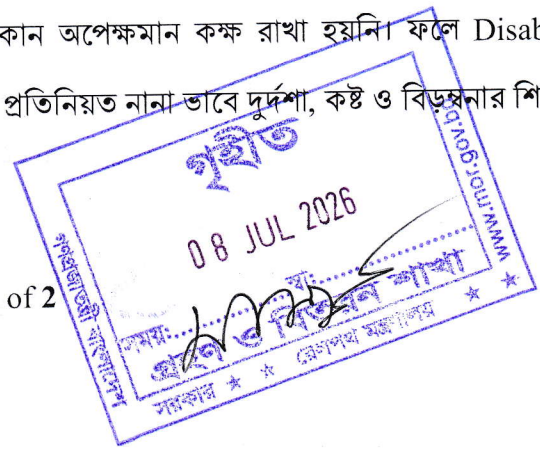 কান অপেক্ষমান কক্ষ রাখা হয়নি। ফলে Disab
প্রতিনিয়ত নানা ভাবে দুর্দশা, কষ্ট ও বিড়ম্বনার শি
গৃহীত
08 JUL 2026
of 2
সময়:............স্বা:............
গ্রহণ ও বিতরণ শাখা
গণপ্রজাতন্ত্রী বাংলাদেশ
সরকার ★ ★ রেলপথ মন্ত্রণালয় ★ ★
www.mor.gov.b